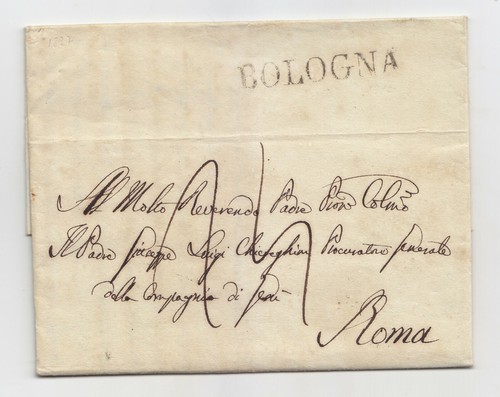 BOLOGNA
Al Molto Reverendo Padre Pron Colmo
Il Padre Giuseppe Luigi Chierighini Procuratore Generale
della Compagnia di Gesù
Roma